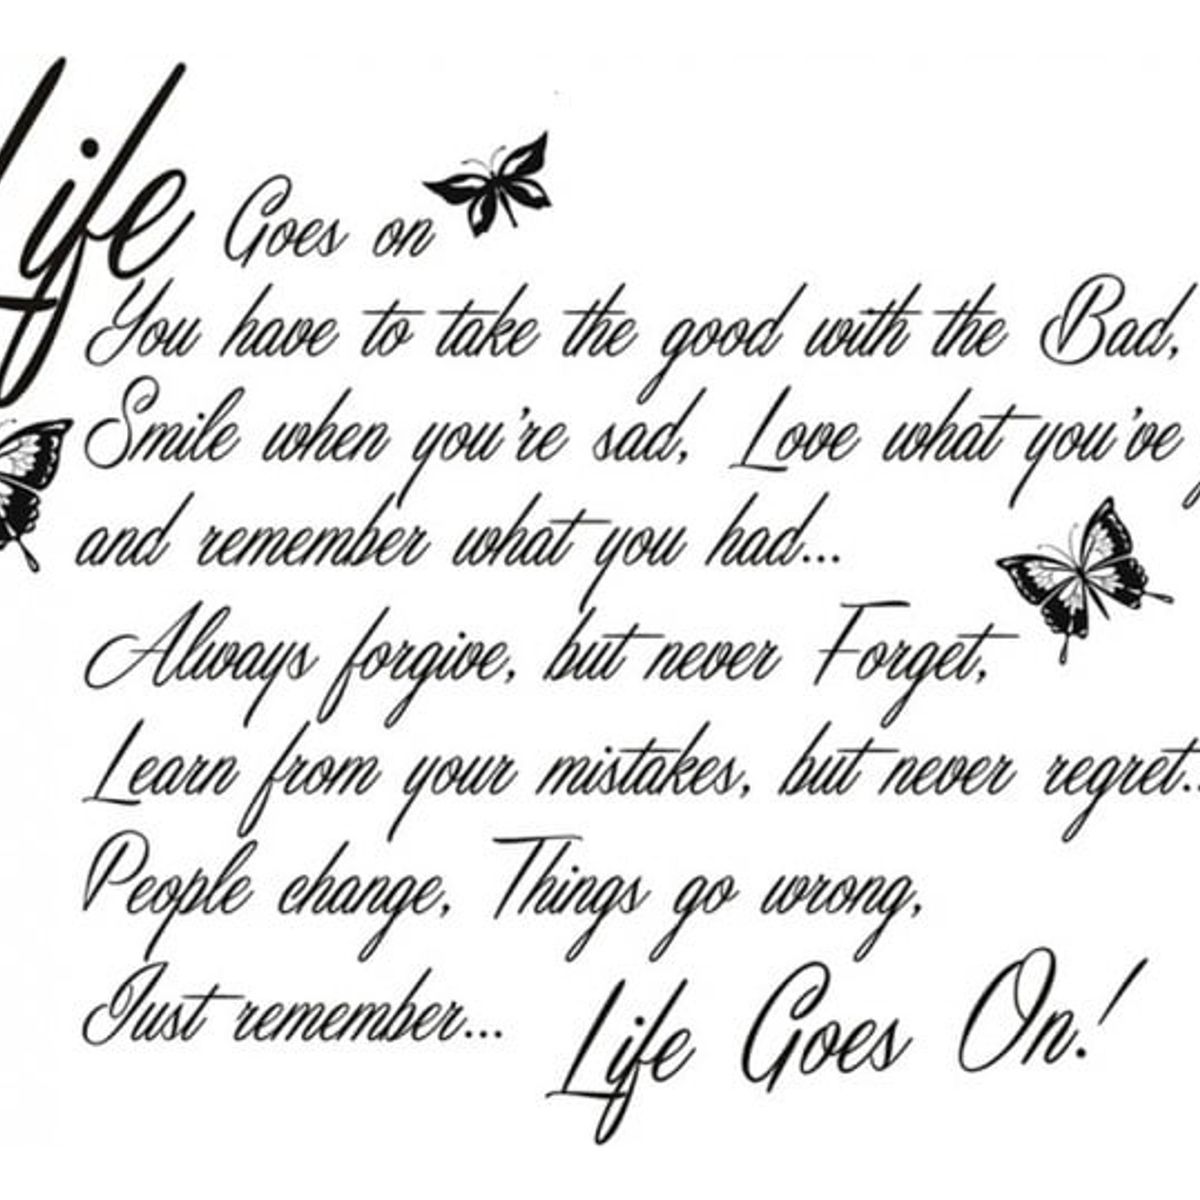 Life Goes on
You have to take the good with the Bad,
Smile when you're sad, Love what you've
and remember what you had...
Always forgive, but never Forget,
Learn from your mistakes, but never regret..
People change, Things go wrong,
Just remember...
Life Goes On!